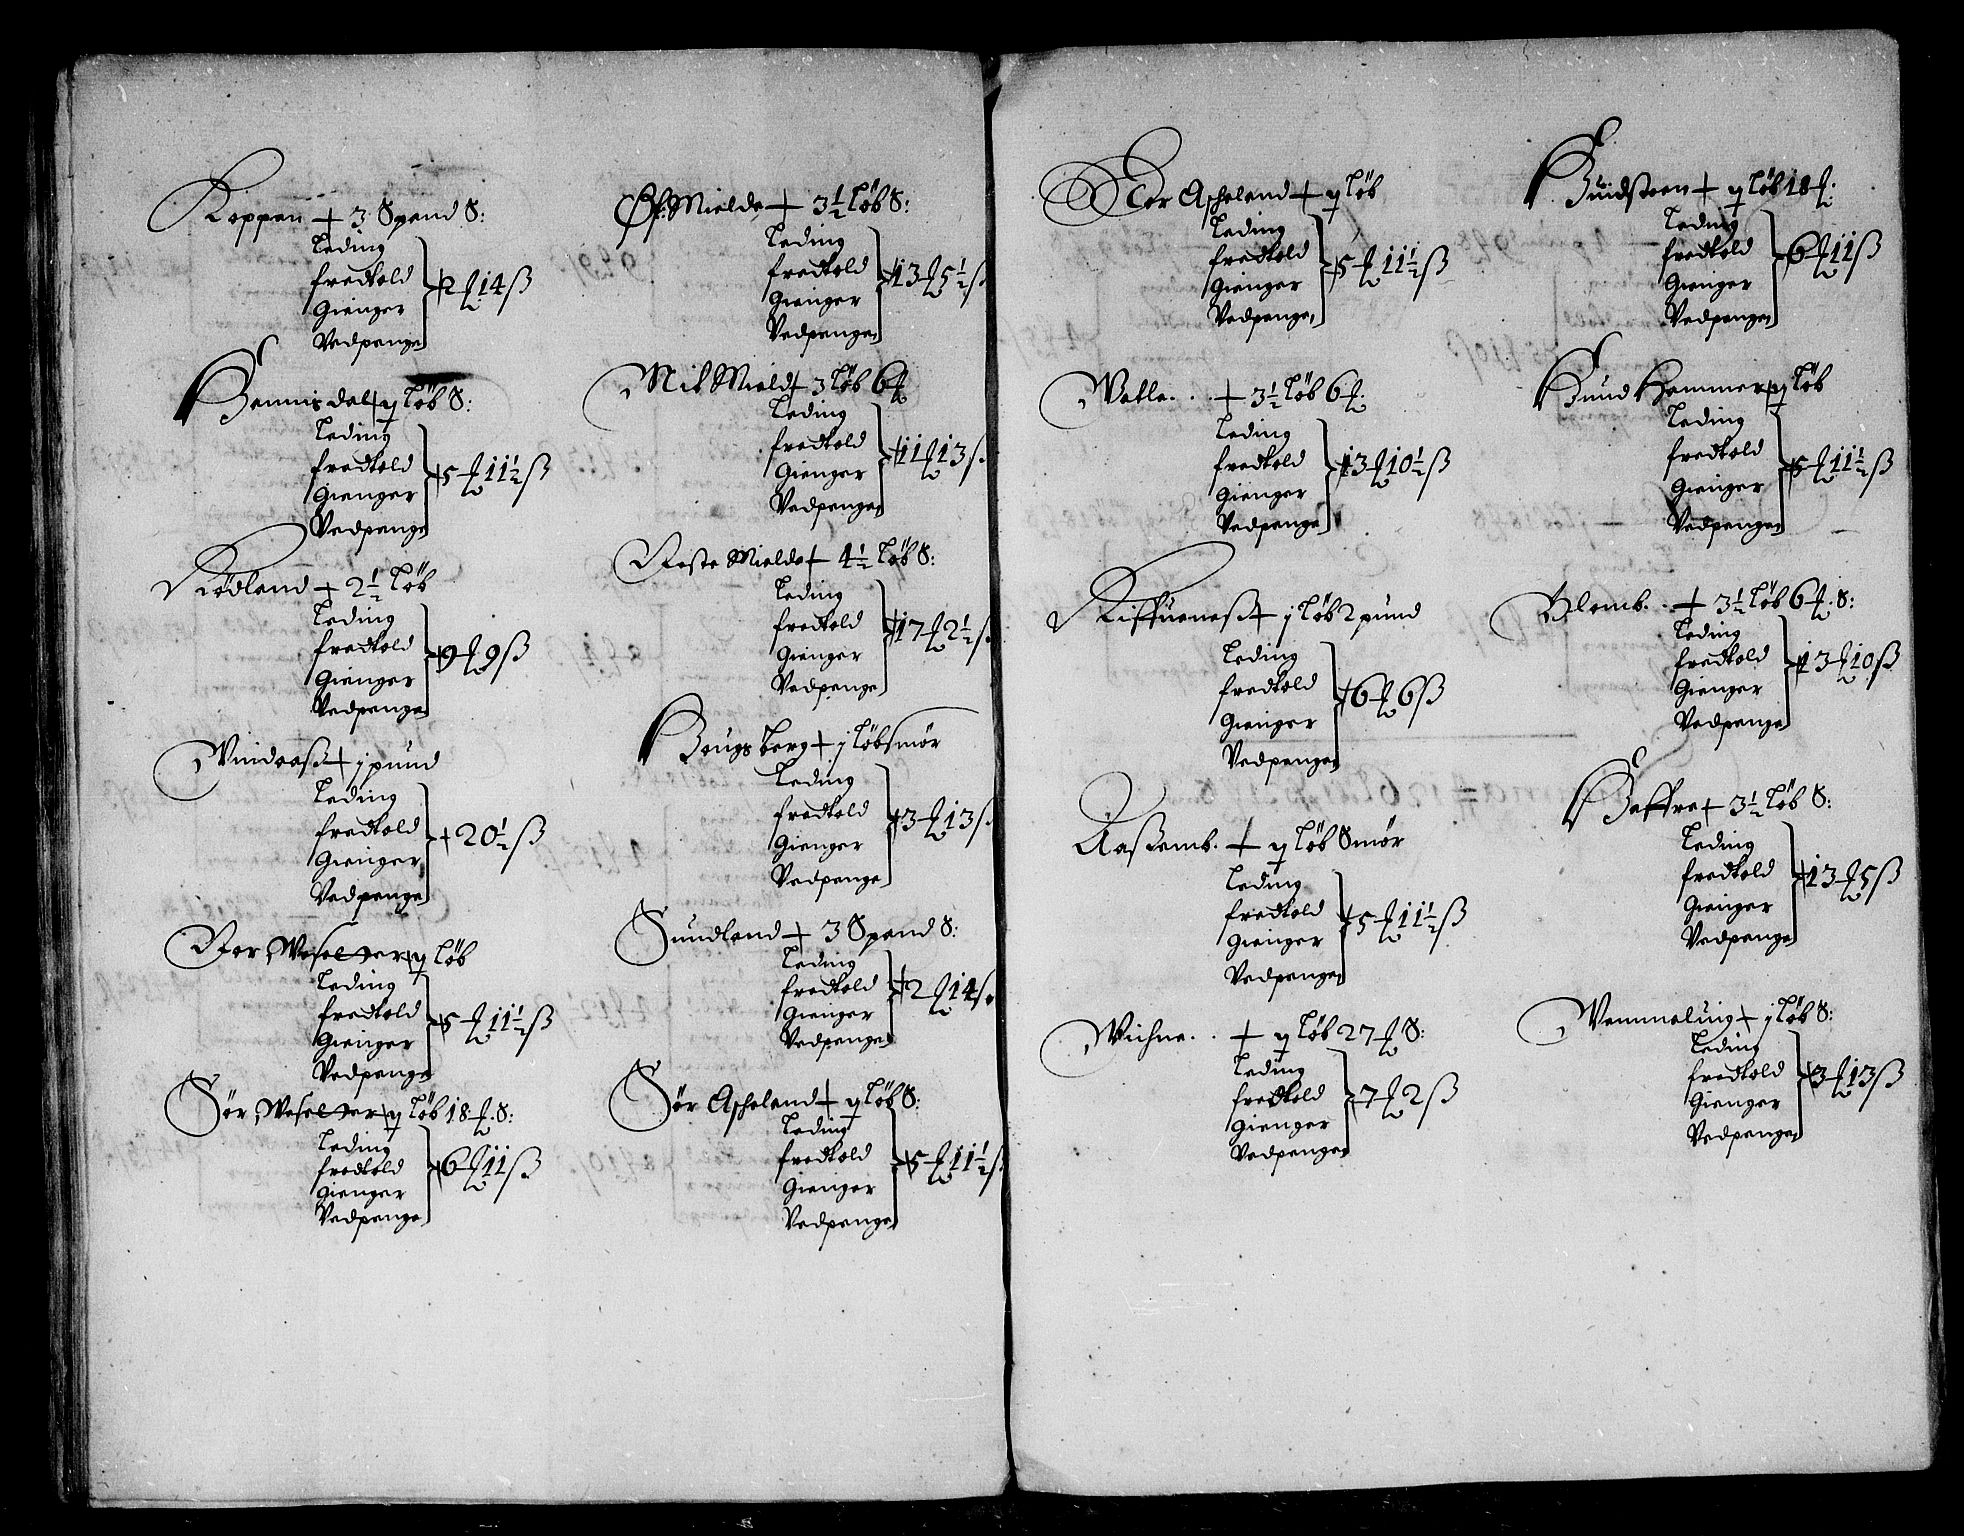 Koppen + 3 Spand S:
Leding
fredtold
Gienger
Vedpenge
2 ℔ 14 ß
Hennisdal + ij løb S:
Leding
fredtold
Gienger
Vedpenge
5 ℔ 11½ ß
Rødland + 2½ løb
Leding
fredtold
Gienger
Vedpenge
9 ℔ 9 ß
Vindaaß + j pund
Leding
fredtold
Gienger
Vedpenge
20½ ß
Nor Wesel ter + ij løb
Leding
fredtold
Gienger
Vedpenge
5 ℔ 11½ ß
Sør Wesel ter + ij løb 18 ℔ S:
Leding
fredtold
Gienger
Vedpenge
6 ℔ 11 ß
Øf: Mielde + 3½ løb S:
Leding
fredtold
Gienger
Vedpenge
13 ℔ 5½ ß
Mit Mield + 3 løb 6 ℔
Leding
fredtold
Gienger
Vedpenge
11 ℔ 13 ß
Neste Mielde + 4½ løb S:
Leding
fredtold
Gienger
Vedpenge
17 ℔ 2½ ß
Hougsberg + j løb smør
Leding
fredtold
Gienger
Vedpenge
3 ℔ 13 ß
Sundland + 3 Spand S:
Leding
fredtold
Gienger
Vedpenge
2 ℔ 14 ß
Sør Ascheland + ij løb S:
Leding
fredtold
Gienger
Vedpenge
5 ℔ 11½ ß
Nor Ascheland + ij løb
Leding
fredtold
Gienger
Vedpenge
5 ℔ 11½ ß
Vatle . . + 3½ løb 6 ℔
Leding
fredtold
Gienger
Vedpenge
13 ℔ 10½ ß
Kiffueneß + j løb 2 pund
Leding
fredtold
Gienger
Vedpenge
6 ℔ 6 ß
Aaßemb. + ij løb Smør
Leding
fredtold
Gienger
Vedpenge
5 ℔ 11½ ß
Wichne . . + ij løb 27 ℔ S:
Leding
fredtold
Gienger
Vedpenge
7 ℔ 2 ß
Huidsteen + ij løb 18 ℔:
Leding
fredtold
Gienger
Vedpenge
6 ℔ 11 ß
Hund Hammer + ij løb
Leding
fredtold
Gienger
Vedpenge
5 ℔ 11½ ß
Blomb. . + 3½ løb 6 ℔: S:
Leding
fredtold
Gienger
Vedpenge
13 ℔ 10 ß
Haffre + 3½ løb S:
Leding
fredtold
Gienger
Vedpenge
13 ℔ 5 ß
Vemmeluig + j løb S:
Leding
fredtold
Gienger
Vedpenge
3 ℔ 13 ß